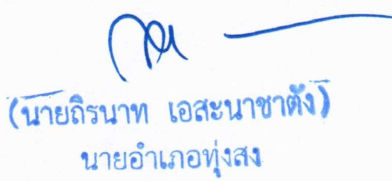 (นายถิรนาท เอสะนาชาตัง)
นายอำเภอทุ่งสง